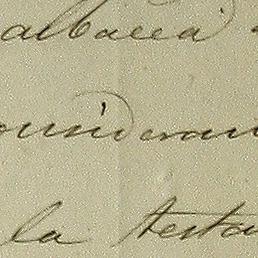 albacea
consideran
la testa